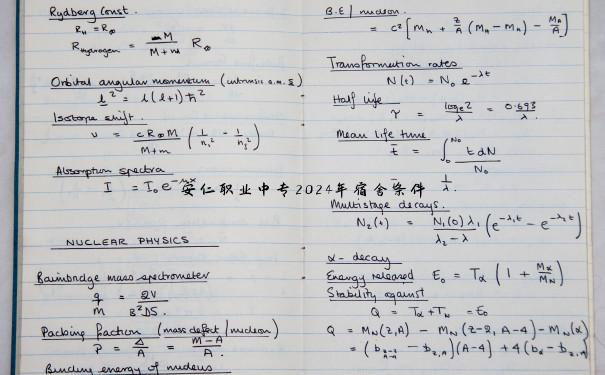 Rydberg Const.
R_H = R_∞
R_Hydrogen = M / (M + m) R_∞
Orbital angular momentum (intrinsic a.m. s)
l² = l(l+1)ħ²
Isotope shift.
ν = cR_∞M / (M+m) (1/n₁² - 1/n₂²)
Absorption spectra
I = I₀e^-μx
安仁职业中专2024年宿舍条件
NUCLEAR PHYSICS
Bainbridge mass spectrometer
q/m = 2V / B²DS.
Packing fraction (mass defect / nucleon)
P = Δ/A = (M-A)/A.
Binding energy of nucleus
B.E / nucleon.
= c² [M_n + Z/A (M_H - M_n) - M_A/A]
Transformation rates
N(t) = N₀ e^-λt
Half life
τ = log_e 2 / λ = 0.693 / λ.
Mean life time
t̄ = ∫₀^N₀ t dN / N₀
= 1/λ.
Multistage decays.
N₂(t) = N₁(0)λ₁ / (λ₂ - λ) (e^-λ₁t - e^-λ₂t)
α - decay
Energy released E₀ = T_α (1 + M_α/M_N)
Stability against
Q = T_α + T_N = E₀
Q = M_N(Z,A) - M_N(Z-2, A-4) - M_N(α)
= (b_Z-2,A-4 - b_Z,A)(A-4) + 4(b_α - b_Z,A)